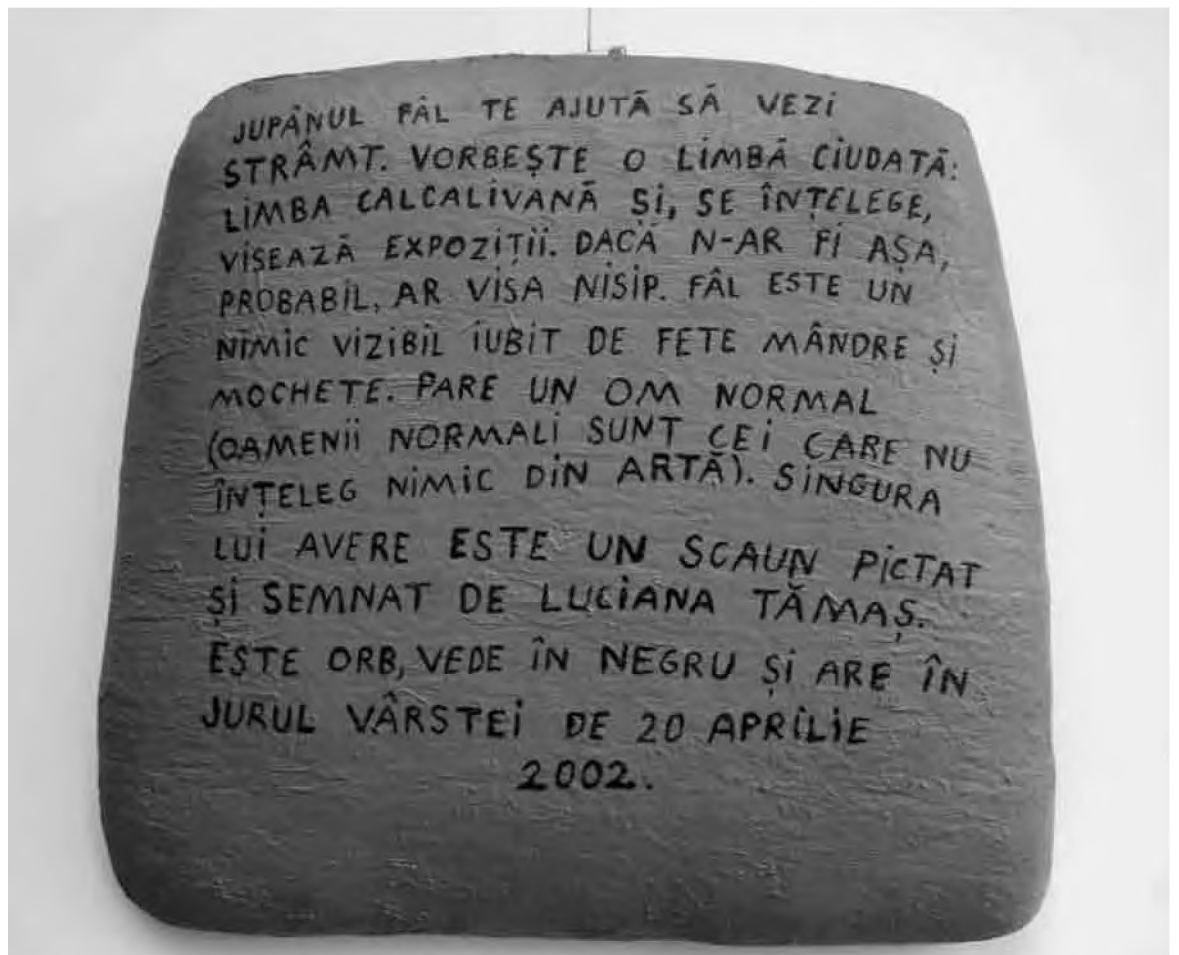 JUPÂNUL FÂL TE AJUTĂ SĂ VEZI
STRÂMT. VORBEȘTE O LIMBĂ CIUDATĂ:
LIMBA CALCALIVANĂ ȘI, SE ÎNȚELEGE,
VISEAZĂ EXPOZIȚII. DACĂ N-AR FI AȘA,
PROBABIL, AR VISA NISIP. FÂL ESTE UN
NIMIC VIZIBIL IUBIT DE FETE MÂNDRE ȘI
MOCHETE. PARE UN OM NORMAL
(OAMENII NORMALI SUNT CEI CARE NU
ÎNȚELEG NIMIC DIN ARTĂ). SINGURA
LUI AVERE ESTE UN SCAUN PICTAT
ȘI SEMNAT DE LUCIANA TĂMAȘ.
ESTE ORB, VEDE ÎN NEGRU ȘI ARE ÎN
JURUL VÂRSTEI DE 20 APRILIE
2002.